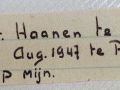 : Haanen te
Aug. 1947 te P
P Mijn.